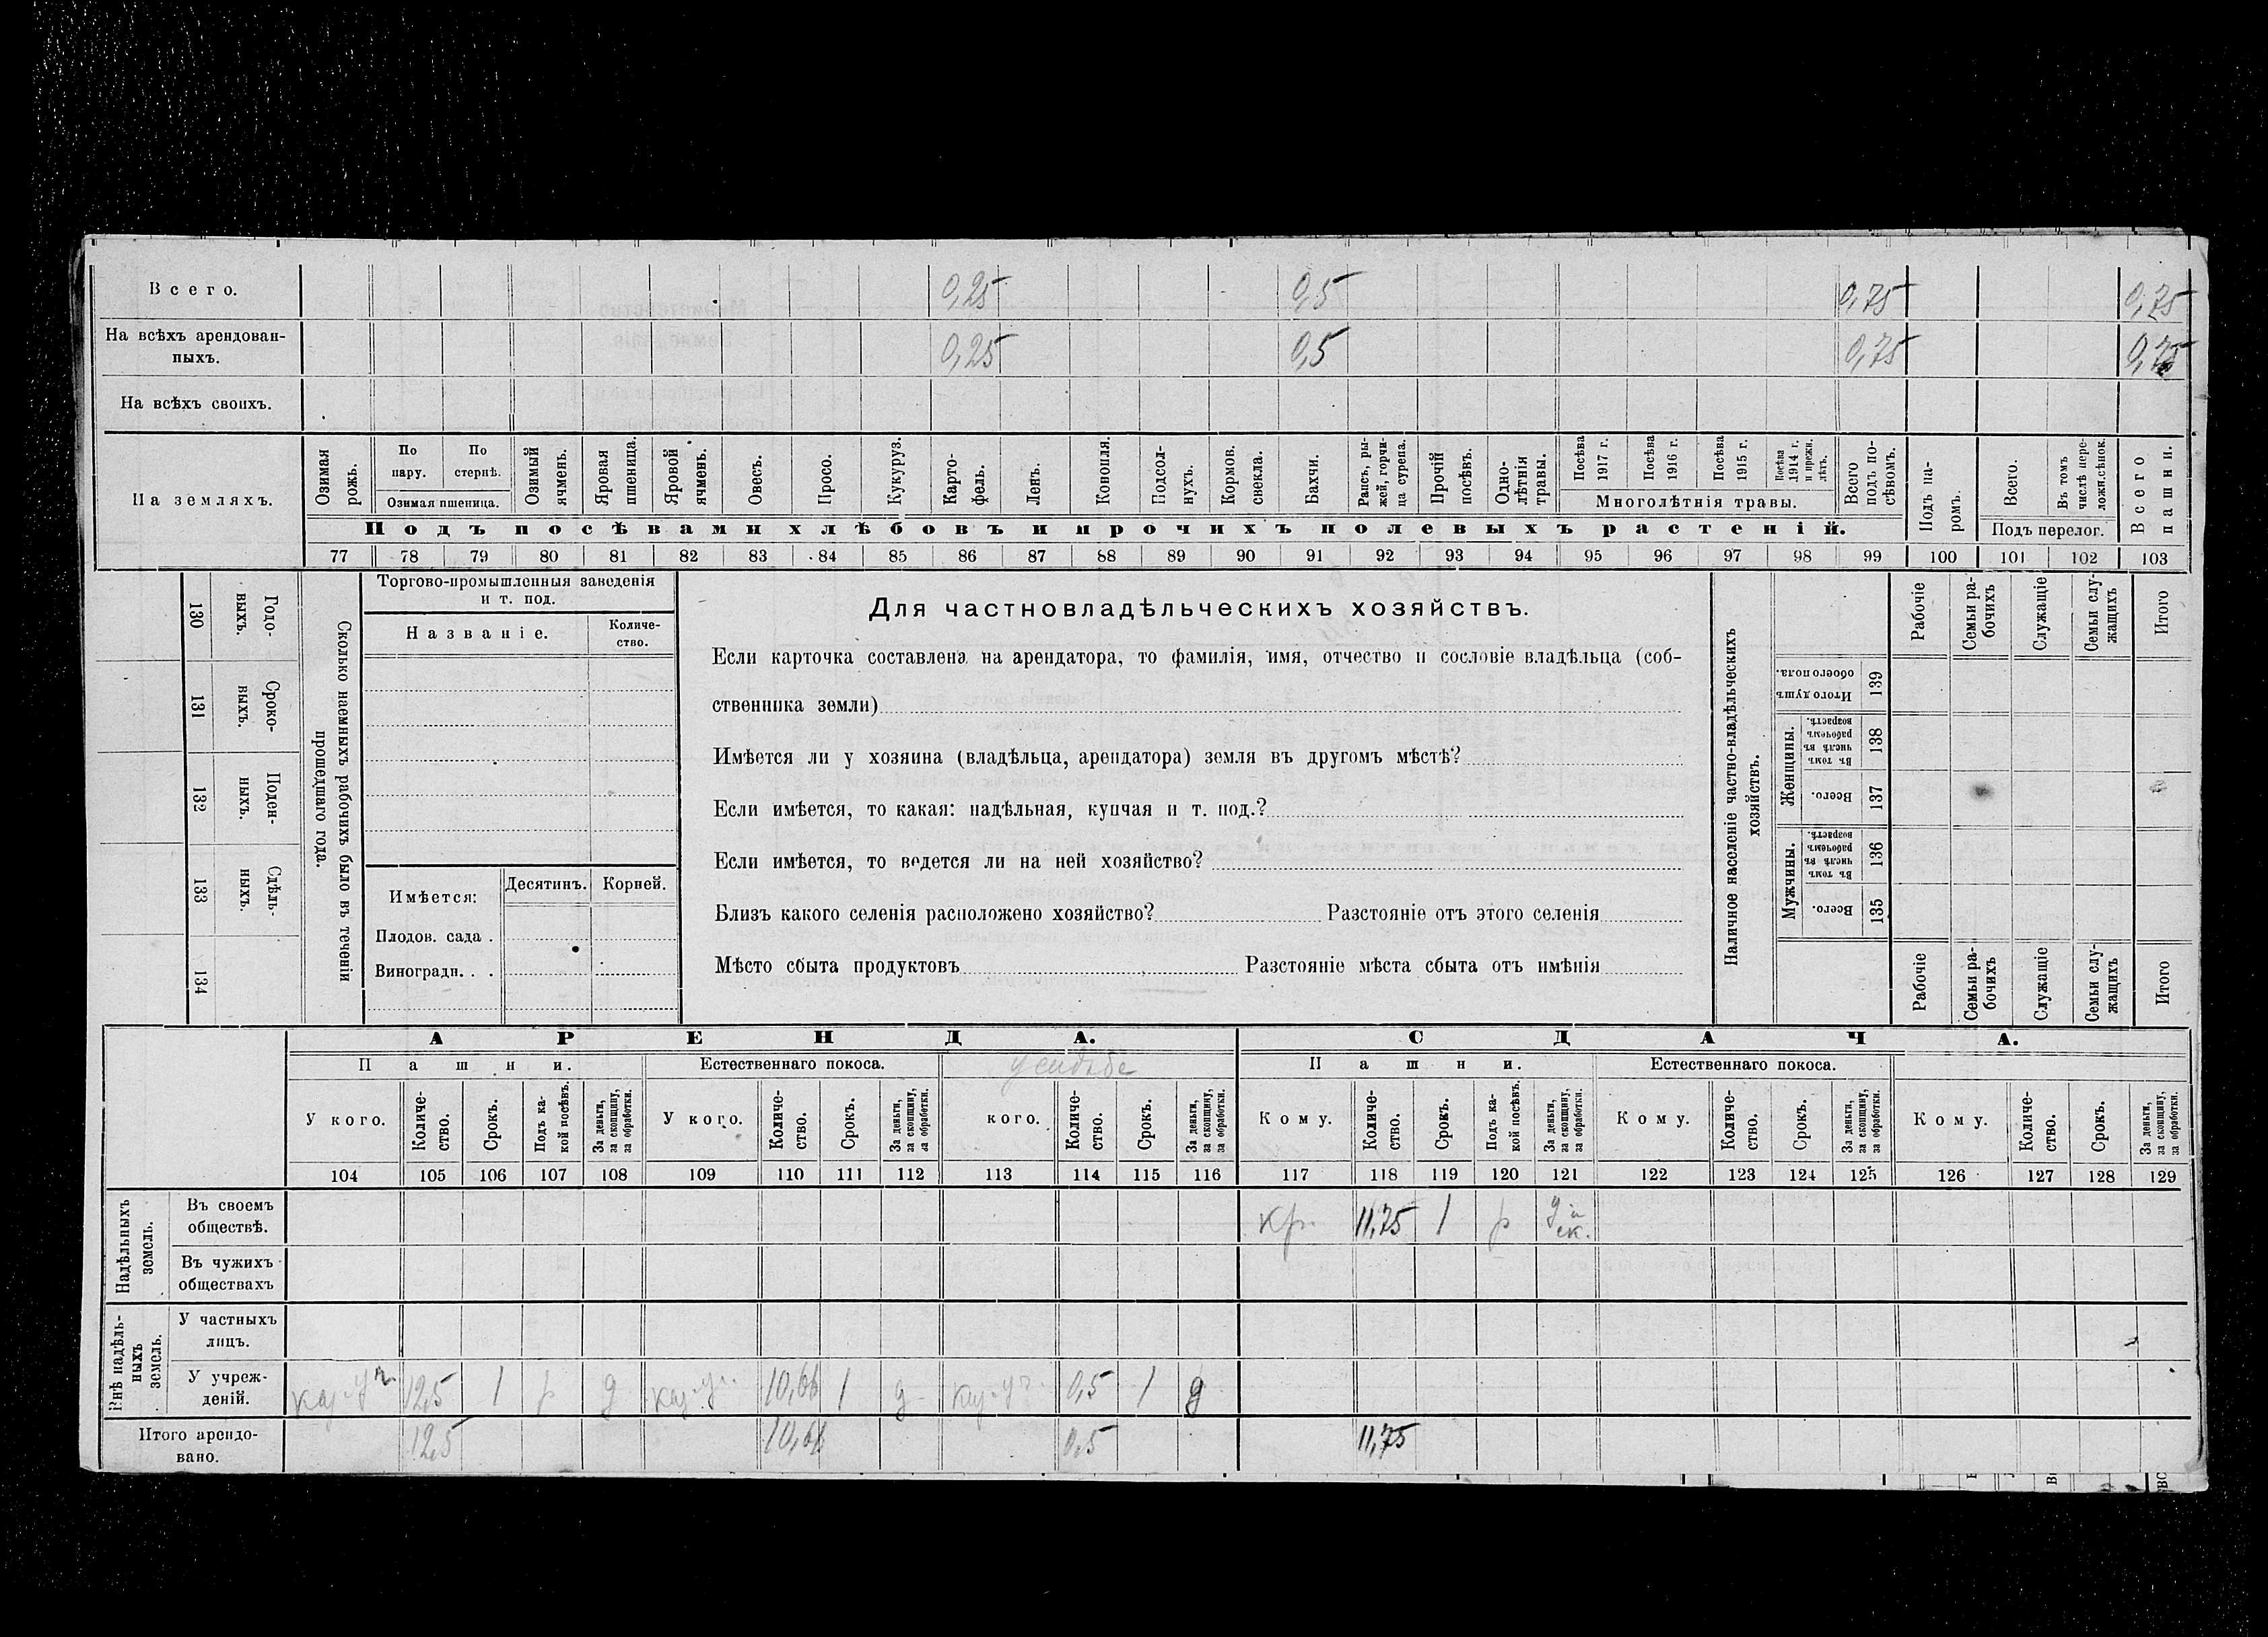 Всего. 0,25 0,5 0,75 0,75
На всѣхъ арендован-
ныхъ. 0,25 0,5 0,75 0,75
На всѣхъ своихъ.
На земляхъ.
Озимая рожь.
По пару.
По стернѣ.
Озимая пшеница.
Озимый ячмень.
Яровая пшеница.
Яровой ячмень.
Овесъ.
Просо.
Кукуруз.
Карто-
фель.
Ленъ.
Конопля.
Подсол-
нухъ.
Кормов. свекла.
Бахчи.
Рапсъ, ры-
жей, горчи-
ца сурепа.
Прочій посѣвъ.
Одно-
лѣтнія травы.
Посѣва 1917 г.
Посѣва 1916 г.
Посѣва 1915 г.
Посѣва 1914 г. и прежн. лѣтъ.
Многолѣтнія травы.
Всего подъ по-
сѣвомъ.
Подъ па-
ромъ.
Всего.
Въ томъ числѣ пере-
ложн.сѣнок.
Подъ перелог.
Всего пашни.
Подъ посѣвами хлѣбовъ и прочихъ полевыхъ растеній.
77 78 79 80 81 82 83 84 85 86 87 88 89 90 91 92 93 94 95 96 97 98 99 100 101 102 103
130 Годо-
выхъ.
131 Сроко-
выхъ.
132 Поден-
ныхъ.
133 Сдѣль-
ныхъ.
134
Сколько наемныхъ рабочихъ было въ теченіи
прошедшаго года.
Торгово-промышленныя заведенія
и т. под.
Названіе.
Количе-
ство.
Имѣется:
Десятинъ. Корней.
Плодов. сада .
Виноградн. . .
Для частновладѣльческихъ хозяйствъ.
Если карточка составлена на арендатора, то фамилія, имя, отчество и сословіе владѣльца (соб-
ственника земли)
Имѣется ли у хозяина (владѣльца, арендатора) земля въ другомъ мѣстѣ?
Если имѣется, то какая: надѣльная, купчая и т. под.?
Если имѣется, то ведется ли на ней хозяйство?
Близъ какого селенія расположено хозяйство? Разстояніе отъ этого селенія
Мѣсто сбыта продуктовъ Разстояніе мѣста сбыта отъ имѣнія
Наличное населеніе частно-владѣльческихъ
хозяйствъ.
Рабочіе
Семьи ра-
бочихъ
Служащіе
Семьи слу-
жащихъ
Итого
Итого душъ обоего пола. 139
Женщины.
Въ томъ числѣ въ рабочемъ возрастѣ. 138
Всего. 137
Мужчины.
Въ томъ числѣ въ рабочемъ возрастѣ. 136
Всего. 135
Рабочіе
Семьи ра-
бочихъ
Служащіе
Семьи слу-
жащихъ
Итого
АРЕНДА. СДАЧА.
Пашни. Естественнаго покоса. усадьбе Пашни. Естественнаго покоса.
У кого.
Количе-
ство.
Срокъ.
Подъ ка-
кой посѣвъ.
За деньги, за скопщину, за обработки.
У кого.
Количе-
ство.
Срокъ.
За деньги, за скопщину, за обработки.
кого.
Количе-
ство.
Срокъ.
За деньги, за скопщину, за обработки.
Кому.
Количе-
ство.
Срокъ.
Подъ ка-
кой посѣвъ.
За деньги, за скопщину, за обработки.
Кому.
Количе-
ство.
Срокъ.
За деньги, за скопщину, за обработки.
Кому.
Количе-
ство.
Срокъ.
За деньги, за скопщину, за обработки.
104 105 106 107 108 109 110 111 112 113 114 115 116 117 118 119 120 121 122 123 124 125 126 127 128 129
Надѣльныхъ
земель.
Въ своемъ
обществѣ. кр. 11,75 1 р д и ск.
Въ чужихъ
обществахъ
Внѣ надѣль-
ныхъ
земель.
У частныхъ
лицъ.
У учреж-
деній. каз. уч. 12,5 1 р д каз. уч. 10,66 1 д каз. уч. 0,5 1 д
Итого арендо-
вано. 12,5 10,66 0,5 11,75